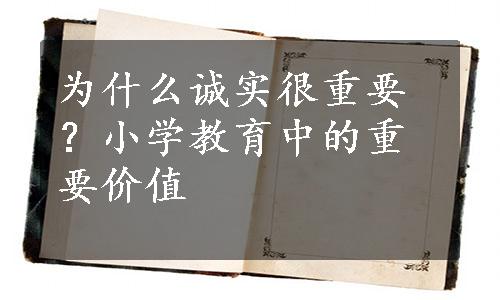 为什么诚实很重要
？小学教育中的重
要价值